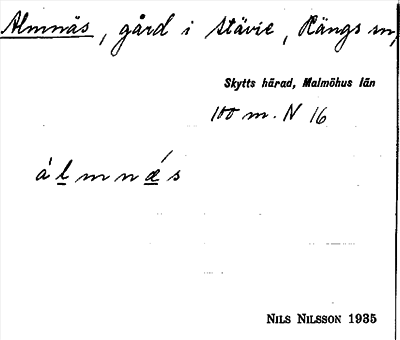 Almnäs, gård i Stävie, Rängs sn,
Skytts härad, Malmöhus län
100 m. N 16
álmnǽs
NILS NILSSON 1935